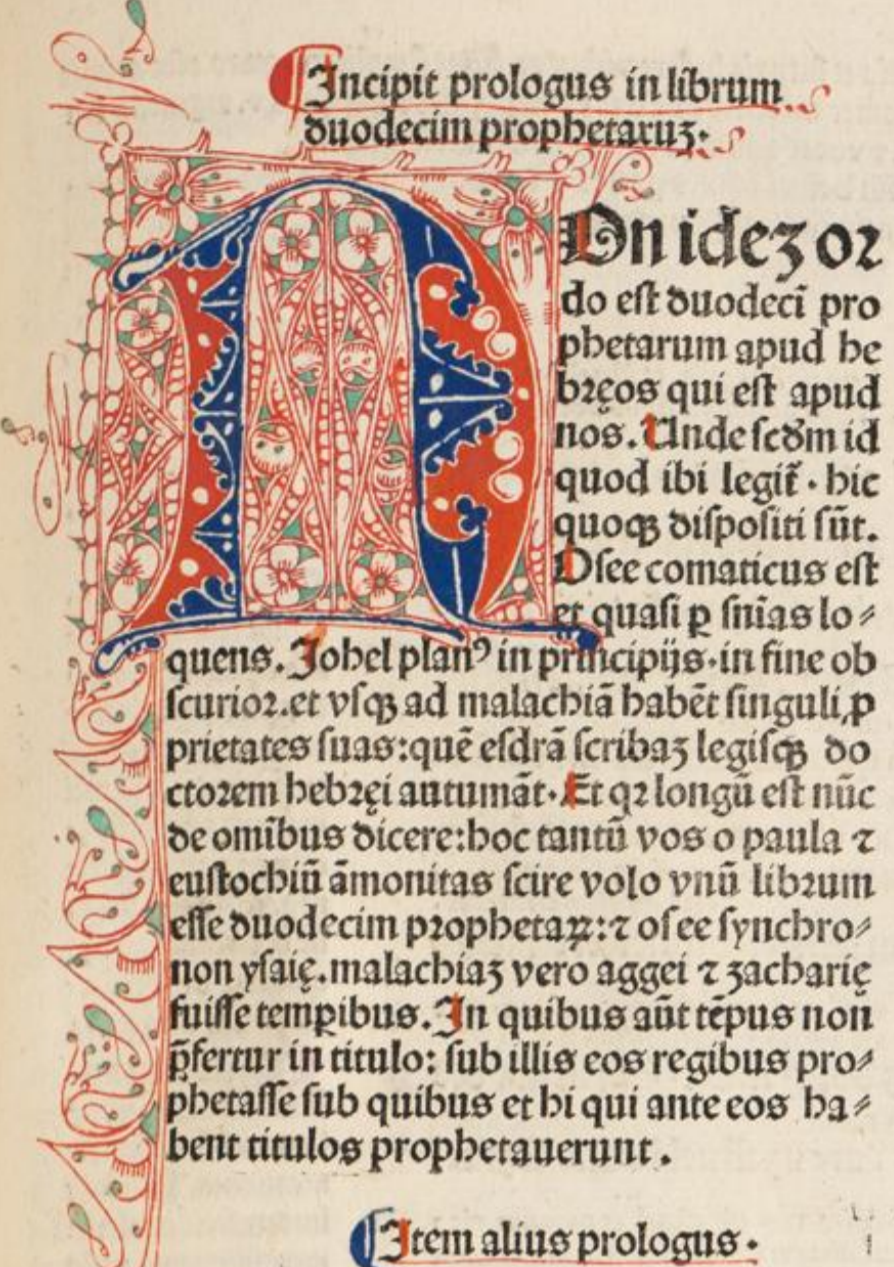 Incipit prologus in librum
duodecim prophetaruꝫ.
NOn ideꝫ or
do est duodecī pro
phetarum apud he
breços qui est apud
nos. Unde scđm id
quod ibi legit̄ · hic
quoqꝫ dispositi sūt.
Osee comaticus est
et quasi ꝑ snīas lo⸗
quens. Johel planꝰ in principijs · in fine ob
scurior. et vsqꝫ ad malachiā habēt singuli ꝓ
prietates suas: quē esdrā scribaꝫ legisqꝫ do
ctorem hebręi autumāt · Et qꝛ longū est nūc
de omībus dicere: hoc tantū vos o paula ⁊
eustochiū āmonitas scire volo vnū librum
esse duodecim prophetaꝝ: ⁊ osee synchro⸗
non ysaię. malachiaꝫ vero aggei ⁊ zacharię
fuisse temꝑibus. In quibus aūt tēpus non
p̄fertur in titulo: sub illis eos regibus pro⸗
phetasse sub quibus et hi qui ante eos ha⸗
bent titulos prophetauerunt.
Item alius prologus ·